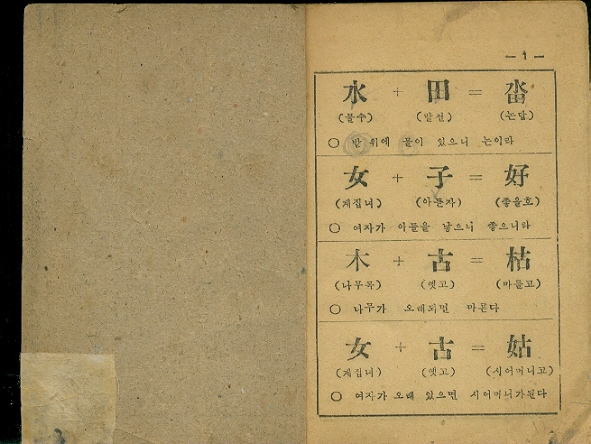 — 1 —
水 + 田 = 畓
(물수) (밭전) (논답)
○ 밭 위에 물이 있으니 논이라
女 + 子 = 好
(계집녀) (아들자) (좋을호)
○ 여자가 아들을 낳으니 좋으니라
木 + 古 = 枯
(나무목) (옛고) (마를고)
○ 나무가 오래되면 마른다
女 + 古 = 姑
(계집녀) (옛고) (시어머니고)
○ 여자가 오래 있으면 시어머니가된다